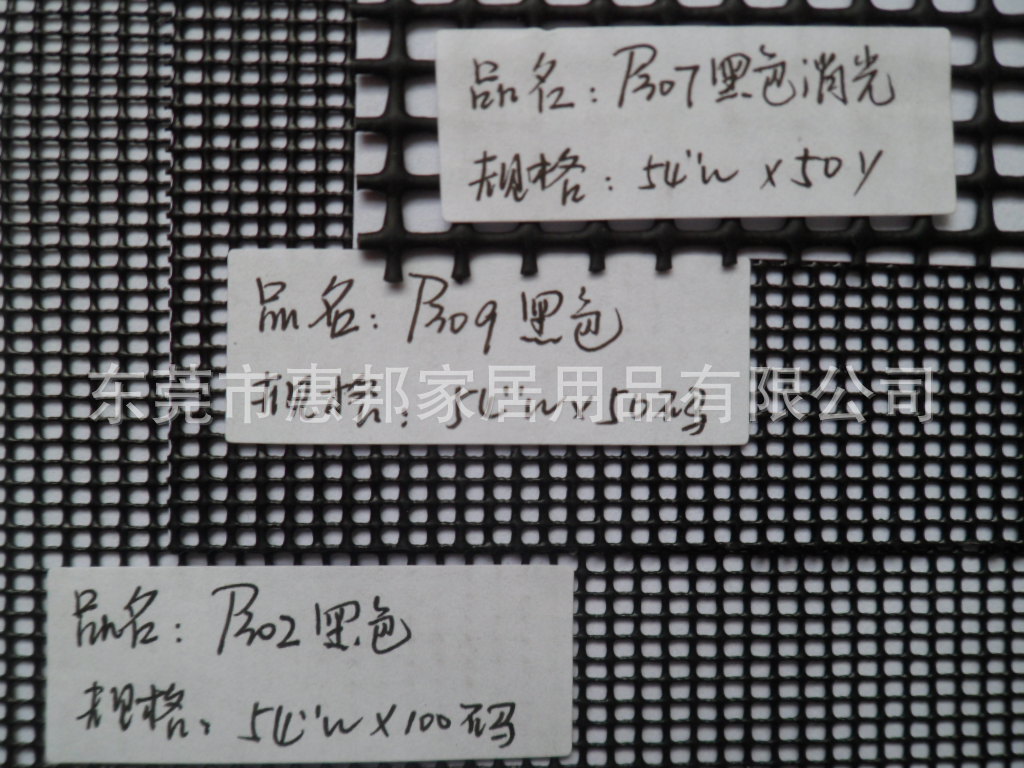 品名：B07黑色消光
规格：54"w x 50y
品名：B09黑色
规格：54"w x 50码
东莞市惠邦家居用品有限公司
品名：B02黑色
规格：54"w x 100码